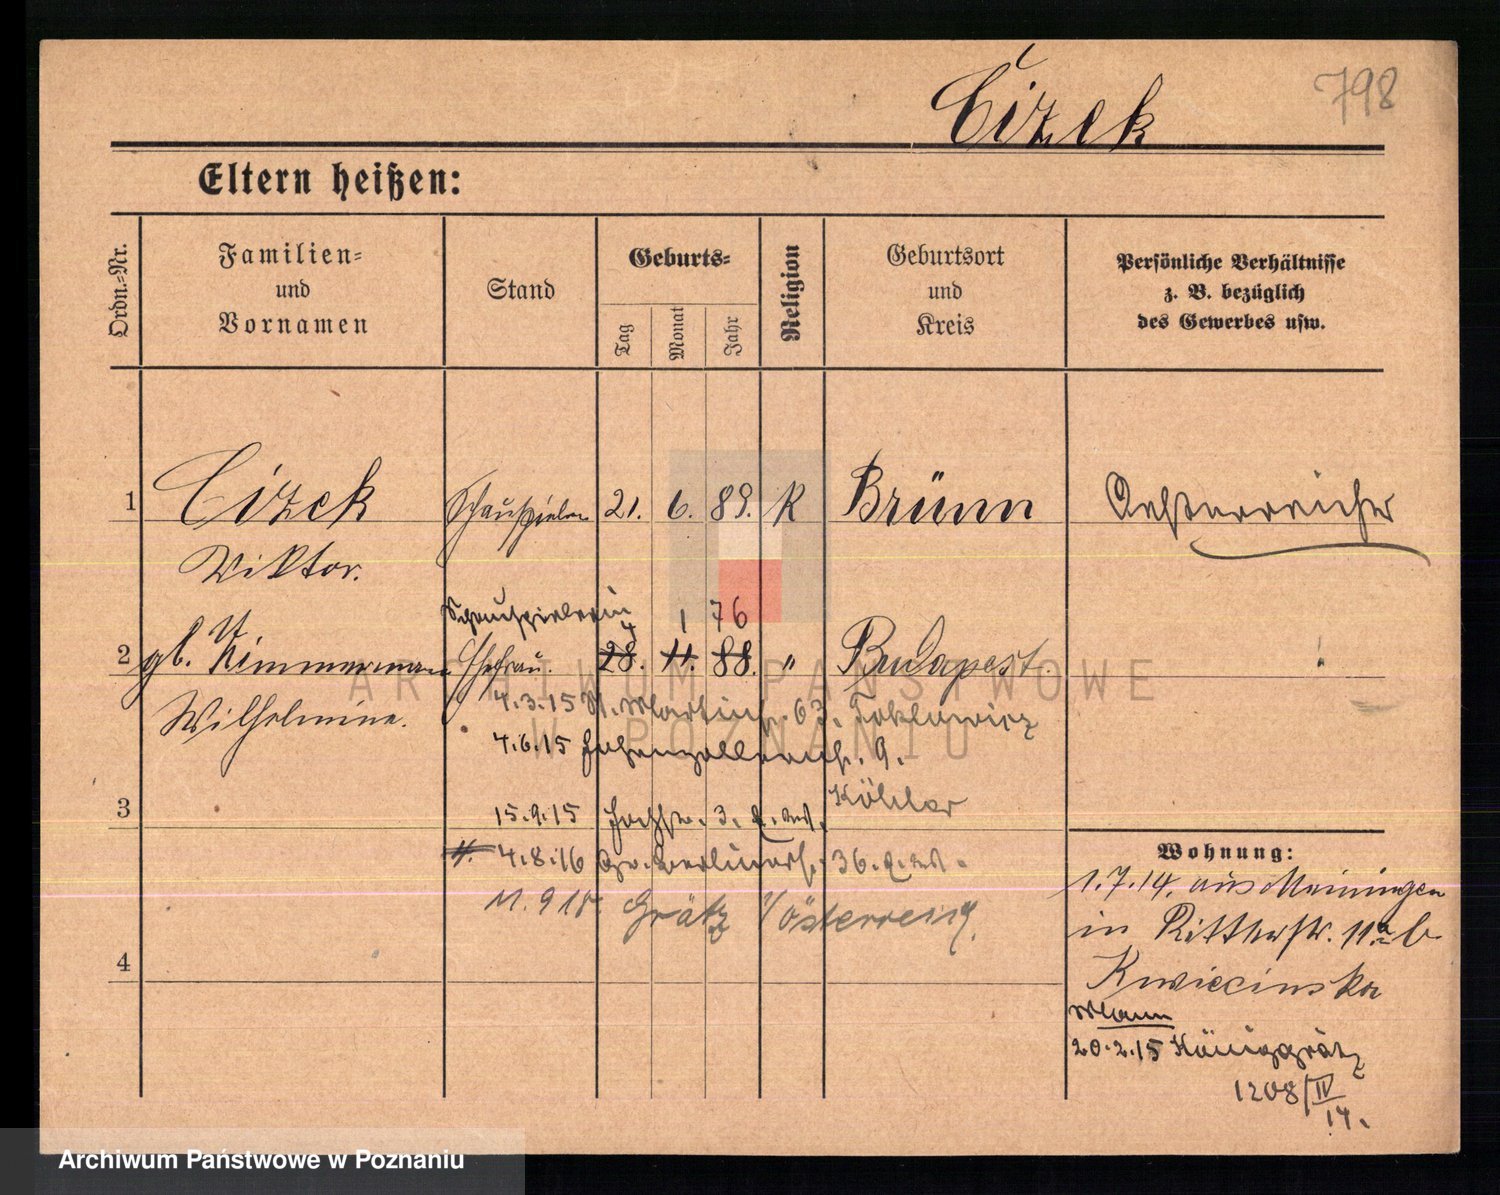 798
Čížek
Eltern heißen:
Ordn.-Nr.
Familien-
und
Vornamen
Stand
Geburts-
Tag
Monat
Jahr
Religion
Geburtsort
und
Kreis
Persönliche Verhältnisse
z. B. bezüglich
des Gewerbes usw.
1
Čížek
Schauspieler
21. 6. 89.
K
Brünn
Oesterreicher
Viktor.
Schauspielerin
1 76
2
gb. Kimmermann
Ehefrau.
28. 11. 88.
"
Budapest.
Wilhelmine.
4.3.15 St. Martinstr. 63.
4.6.15 Hohenzollernstr. 9.
Köhler
3
15.9.15
3.
4.8.16 Gr. Berlinerstr. 36.
11.9.18. Grätz i/Österreich.
4
Wohnung:
1.7.14. aus Meiningen
in Ritterstr. 11a b
Kwiecinska
Mann
20.2.15 Königgrätz
1208/IV
14.
ARCHIWUM PAŃSTWOWE
W POZNANIU
Archiwum Państwowe w Poznaniu